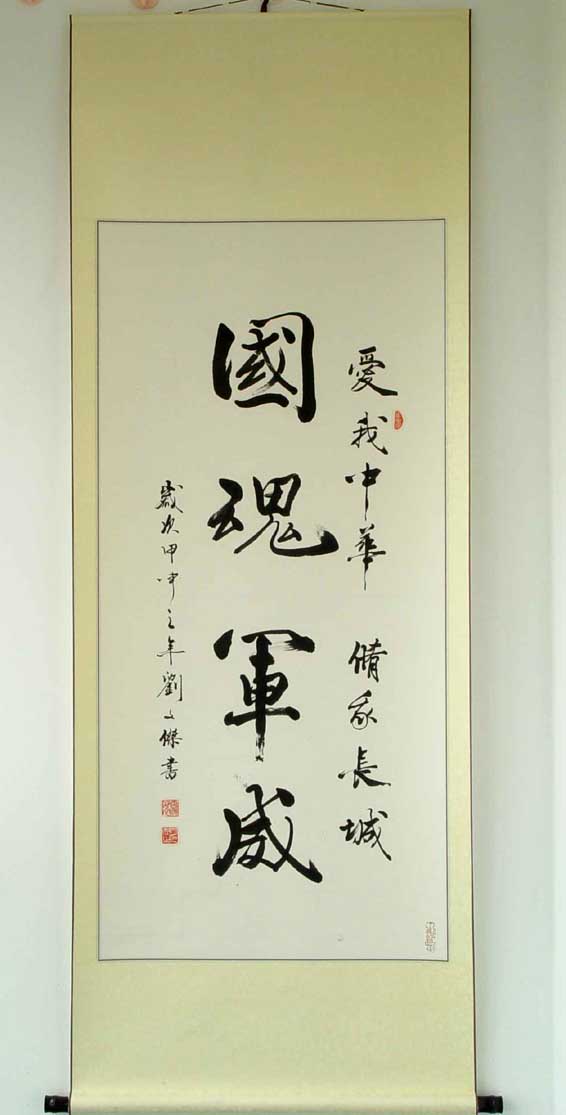 愛我中華 脩我長城
國魂軍威
歲次甲申之年劉文傑書